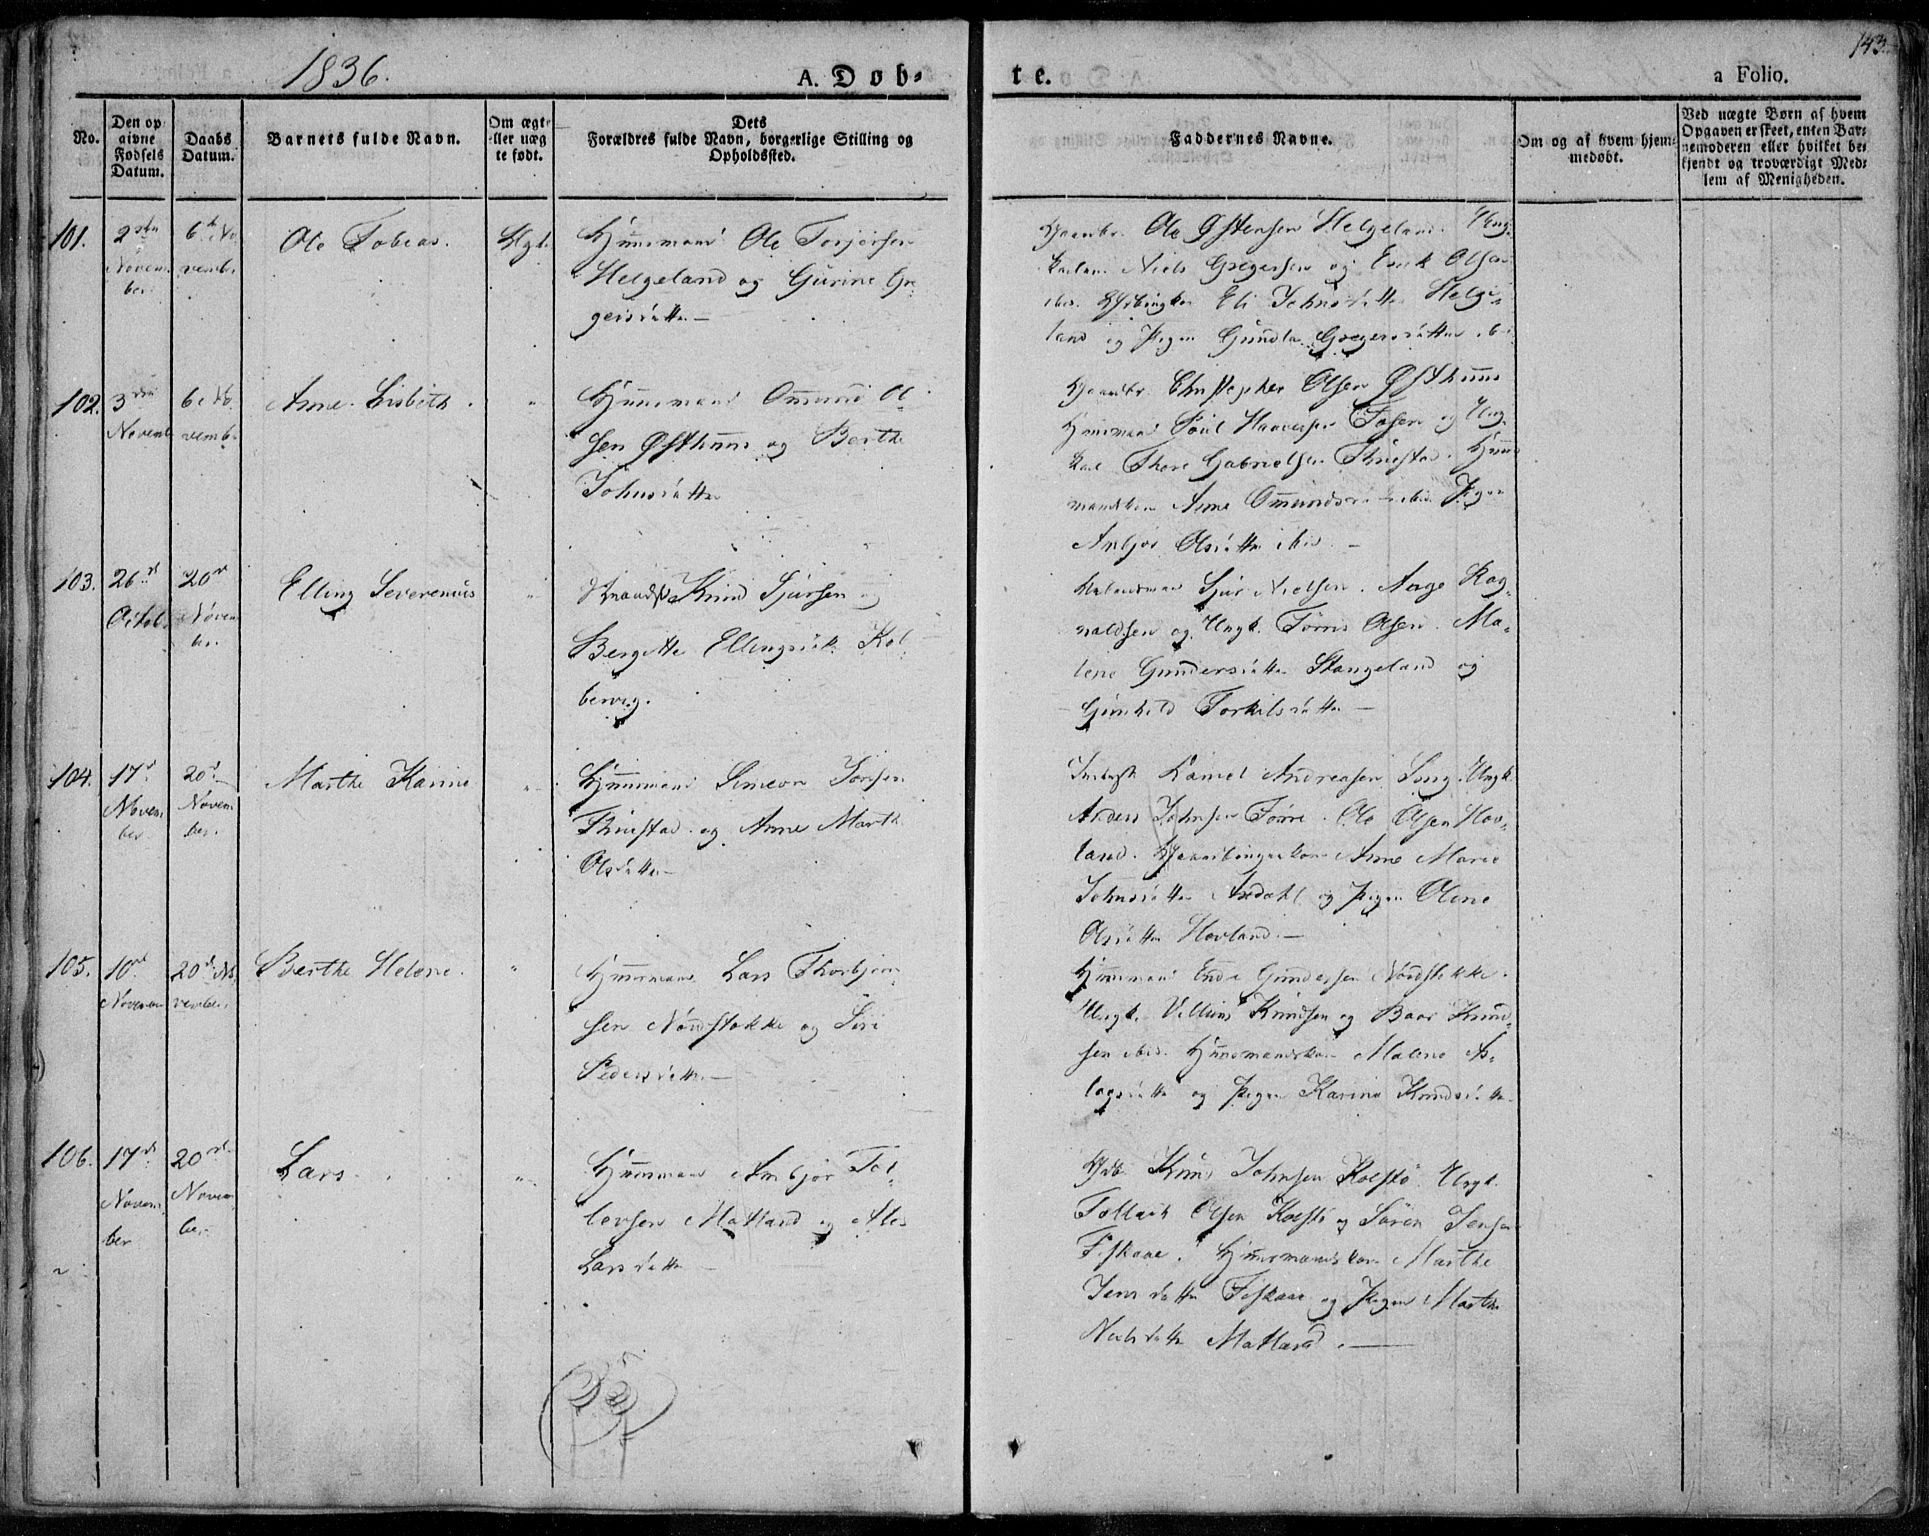 1836.
A. Døb-
te.
a Folio.
143.
No.
Den op
givne
Fødsels
Datum.
Daabs
Datum.
Barnets fulde Navn.
Om ægte
eller uæg
te født.
Dets
Forældres fulde Navn, borgerlige Stilling og
Opholdssted.
Faddernes Navne.
Om og af hvem hjem-
medøbt.
Ved uægte Børn af hvem
Opgaven er skeet, enten Bar-
nemoderen eller hvilket be-
kjendt og troværdigt Med-
lem af Menigheden.
101.
2den
Novem-
ber
6te No
vemb.
Ole Tobias.
Ægt.
Huusmand Ole Torjersen
Helgeland og Gurine Gre
gersdatter
Gaardbr. Ole Østensen Helgeland. Ung-
karlene Niels Gregersen og Erik Olsen
ibid. Eli Johnsdatter Helge-
land og Pigen Gundla Gregersdatter ibid
102.
3die
Novemb
6te No
vemb.
Anne Lisbeth.
"
Huusmand Omund Ol-
sen Østhuus og Berthe
Johnsdatter
Gaardbr. Christopher Olsen Østhuus
Huusmand Poul Haaversen Fosen og Ung-
karl Thore Gabrielsen Thuestad. Huus
mandskone Anne Omundsd. ibid. Pigen
Anbjør Olsdatter ibid.
103.
26de
Octob.
20de
Novem
ber.
Elling Severenius
"
Knud Sjursen og
Bergitte Ellingsdtr. Kol-
berveg.
Sjur Nielsen. Aage Rag-
naldsen og Ungk. Tørris Olsen. Ma-
lene Gundersdatter Stangeland og
Gunhild Torkilsdatter
104.
17de
Novem-
ber
20de
Novem
ber.
Marthe Karine
"
Huusmand Simeon Jonsen
Thuestad og Anne Marthe
Olsdatter
Daniel Andreasen Ungk.
Anders Johnsen Førre. Ole Olsen Hov-
land. Anne Marie
Johnsdatter og Pigen Olene
Olsdatter Hovland.
105.
10de
Novemb
20de No
vember.
Berthe Helene.
"
Huusmand Lars Thorbjørn
sen Nordstokke og Siri
Pedersdatter
Huusmand Endre Gundersen Nordstokke.
Ungk. Villum Knudsen og Baar Knud-
sen ibid. Huusmandskone Malene As-
lagsdatter og Pigen Karine Knudsdatter
106.
17de
Novem-
ber
20de
Novem
ber
Lars.
"
Huusmand Anbjør Tol-
levsen Matland og Ales
Larsdatter
Gdb. Knud Johnsen Kolstø. Ungk.
Tollack Olsen Kolstø og Søren Jensen
Fiskaae. Huusmandskone Marthe
Jensdatter Fiskaae og Pigen Marthe
Nielsdatter Matland.